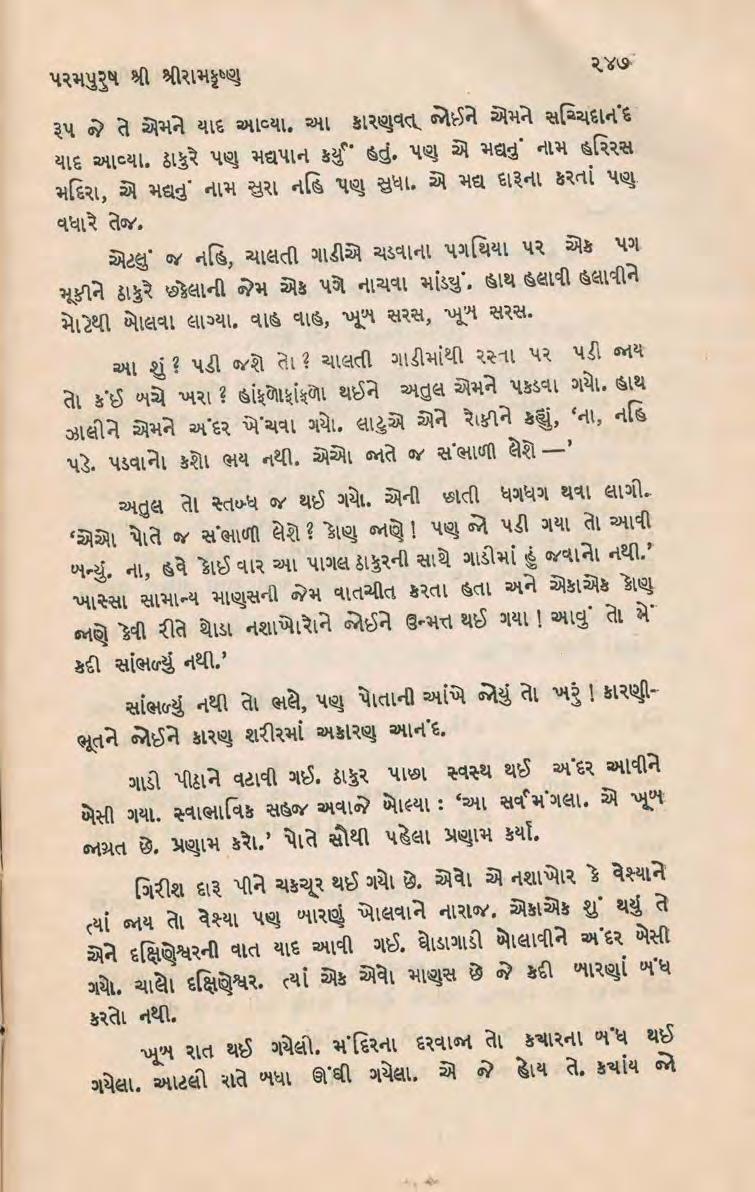 પરમપુરુષ શ્રી શ્રીરામકૃષ્ણ
૨૪૭
રૂપ જે તે એમને યાદ આવ્યા. આ કારણવત્ જોઈને એમને સચ્ચિદાનંદ
યાદ આવ્યા. ઠાકુરે પણ મદ્યપાન કર્યું હતું. પણ એ મદ્યનું નામ હરિરસ
મદિરા, એ મદ્યનું નામ સુરા નહિ પણ સુધા. એ મદ્ય દારૂના કરતાં પણ
વધારે તેજ.
એટલું જ નહિ, ચાલતી ગાડીએ ચડવાના પગથિયા પર એક પગ
મૂકીને ઠાકુરે છકેલાની જેમ એક પગે નાચવા માંડયું. હાથ હલાવી હલાવીને
મોટેથી બોલવા લાગ્યા. વાહ વાહ, ખૂબ સરસ, ખૂબ સરસ.
આ શું ? પડી જશે તો ? ચાલતી ગાડીમાંથી રસ્તા પર પડી જાય
તો કંઈ બચે ખરા ? હાંફળોફાંફળો થઈને અતુલ એમને પકડવા ગયો. હાથ
ઝાલીને એમને અંદર ખેંચવા ગયો. લાટુએ એને રોકીને કહ્યું, ‘ના, નહિ
પડે. પડવાનો કશો ભય નથી. એઓ જાતે જ સંભાળી લેશે —’
અતુલ તો સ્તબ્ધ જ થઈ ગયો. એની છાતી ધગધગ થવા લાગી.
‘એઓ પોતે જ સંભાળી લેશે ? કોણ જાણે ! પણ જો પડી ગયા તો આવી
બન્યું. ના, હવે કોઈ વાર આ પાગલ ઠાકુરની સાથે ગાડીમાં હું જવાનો નથી.’
ખાસ્સા સામાન્ય માણસની જેમ વાતચીત કરતા હતા અને એકાએક કોણ
જાણે કેવી રીતે થોડા નશાખોરોને જોઈને ઉન્મત્ત થઈ ગયા ! આવું તો મેં
કદી સાંભળ્યું નથી.’
સાંભળ્યું નથી તો ભલે, પણ પોતાની આંખે જોયું તો ખરું ! કારણી-
ભૂતને જોઈને કારણ શરીરમાં અકારણ આનંદ.
ગાડી પીઠાને વટાવી ગઈ. ઠાકુર પાછા સ્વસ્થ થઈ અંદર આવીને
બેસી ગયા. સ્વાભાવિક સહજ અવાજે બોલ્યા : ‘આ સર્વમંગલા. એ ખૂબ
જાગ્રત છે. પ્રણામ કરો.’ પોતે સૌથી પહેલા પ્રણામ કર્યાં.
ગિરીશ દારૂ પીને ચકચૂર થઈ ગયો છે. એવો એ નશાખોર કે વેશ્યાને
ત્યાં જાય તો વેશ્યા પણ બારણું ખોલવાને નારાજ. એકાએક શું થયું તે
એને દક્ષિણેશ્વરની વાત યાદ આવી ગઈ. ઘોડાગાડી બોલાવીને અંદર બેસી
ગયો. ચાલો દક્ષિણેશ્વર. ત્યાં એક એવો માણસ છે જે કદી બારણાં બંધ
કરતો નથી.
ખૂબ રાત થઈ ગયેલી. મંદિરના દરવાજા તો કયારના બંધ થઈ
ગયેલા. આટલી રાતે બધા ઊંઘી ગયેલા. એ જે હોય તે. કયાંય જો